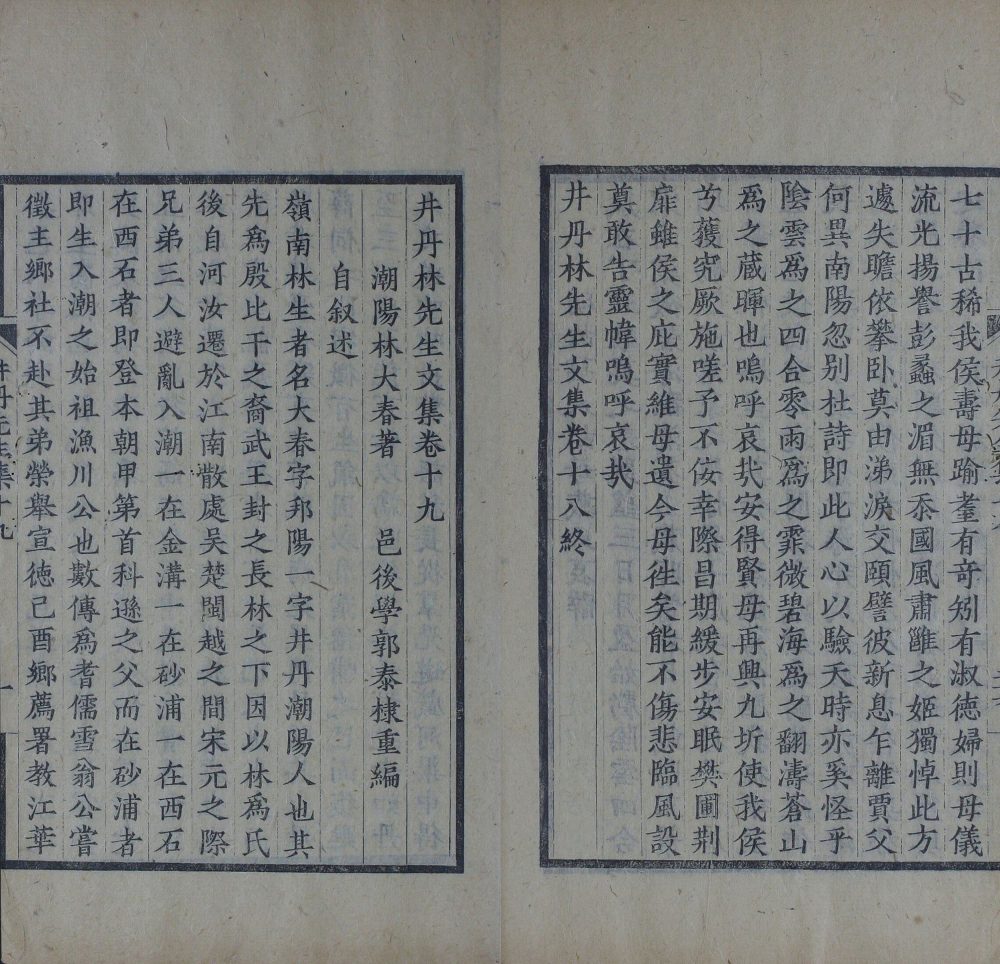 七十古稀我侯壽母踰耋有奇矧有淑徳婦則母儀
流光揚譽彭蠡之湄無忝國風肅雝之姬獨悼此方
遽失瞻依攀卧莫由涕淚交頤譬彼新息乍離賈父
何異南陽忽别杜詩即此人心以驗天時亦奚怪乎
陰雲為之四合零雨為之霏微碧海為之翻濤蒼山
為之蔵暉也嗚呼哀㢤安得賢母再興九圻使我侯
兮獲究厥施嗟予不佞幸際昌期緩步安眠樊圃荆
扉雖侯之庇實維母遺今母徃矣能不傷悲臨風設
奠敢告靈幃嗚呼哀㢤
井丹林先生文集卷十八終
井丹林先生文集卷十九
潮陽林大春著 邑後學郭泰棣重編
自叙述
嶺南林生者名大春字邦陽一字井丹潮陽人也其
先為殷比干之裔武王封之長林之下因以林為氏
後自河汝遷於江南散處吳楚閩越之間宋元之際
兄弟三人避亂入潮一在金溝一在砂浦一在西石
在西石者即登本朝甲第首科遜之父而在砂浦者
即生入潮之始祖漁川公也數傳為耆儒雪翁公嘗
徵主鄉社不赴其弟榮舉宣徳己酉鄉薦署教江華
井丹先生集十九
一